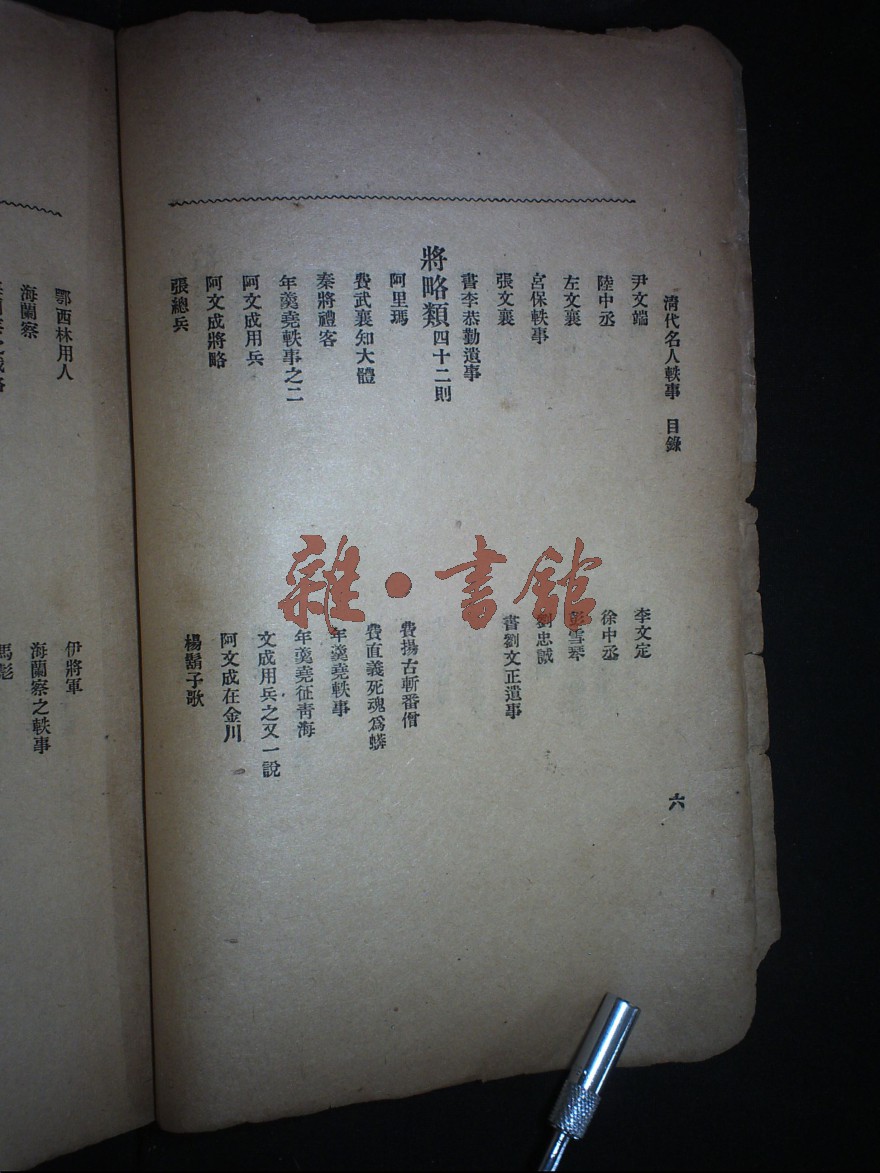 清代名人軼事　目錄
六
尹文端
李文定
陸中丞
徐中丞
左文襄
彭雪琴
宮保軼事
劉忠誠
張文襄
書劉文正遺事
書李恭勤遺事
將略類四十二則
阿里瑪
費揚古斬番僧
費武襄知大體
費直義死魂爲蟒
秦將禮客
年羹堯軼事
年羹堯軼事之二
年羹堯征青海
阿文成用兵
文成用兵之又一說
阿文成將略
阿文成在金川
張總兵
楊鬍子歌
鄂西林用人
伊將軍
海蘭察
海蘭察之軼事
馬彪
雜・書館